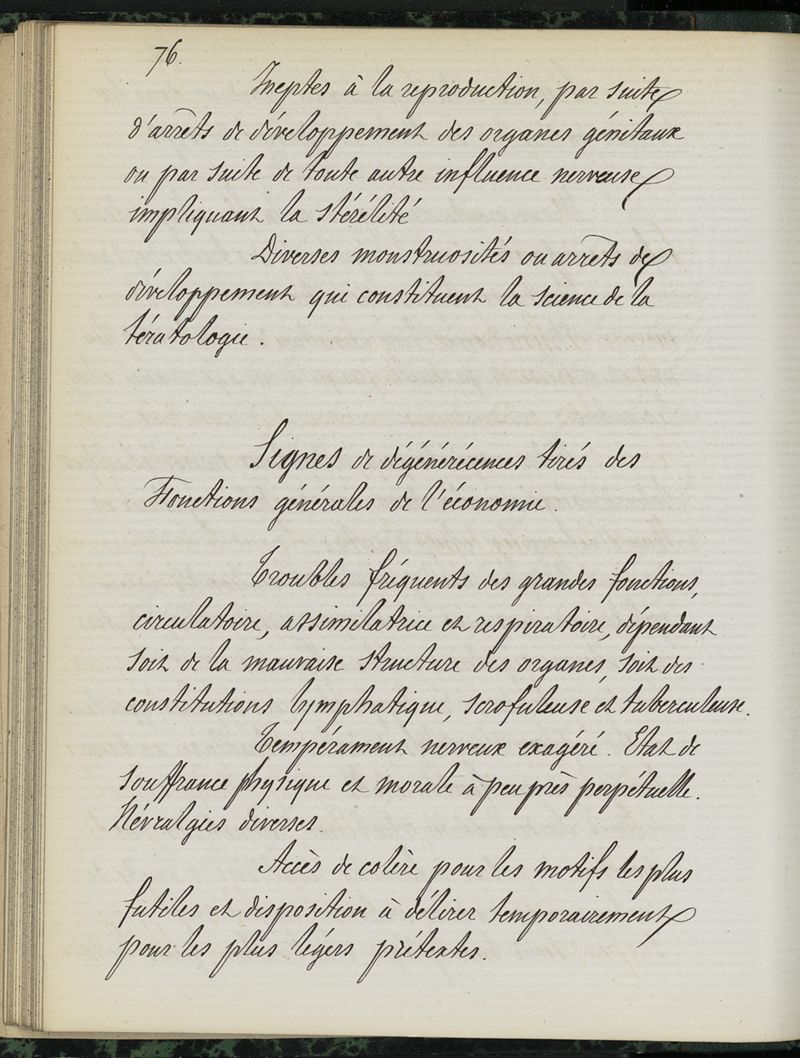 76.
Ineptes à la reproduction, par suite
d'arrêts de développement des organes génitaux
ou par suite de toute autre influence nerveuse
impliquant la stérélité
Diverses monstruosités ou arrêts de
développement qui constituent la science de la
tératologie.
Signes de dégénérécences tirés des
Fonctions générales de l'économie.
Troubles fréquents des grandes fonctions,
circulatoire, assimilatrice et respiratoire, dépendant
soit de la mauvaise structure des organes, soit des
constitutions lymphatique, scrofuleuse et tuberculeuse.
Tempérament nerveux exagéré. Etat de
souffrance physique et morale à peu près perpétuelle.
Névralgies diverses.
Accès de colère pour les motifs les plus
futiles et disposition à délirer temporairement
pour les plus légers prétextes.